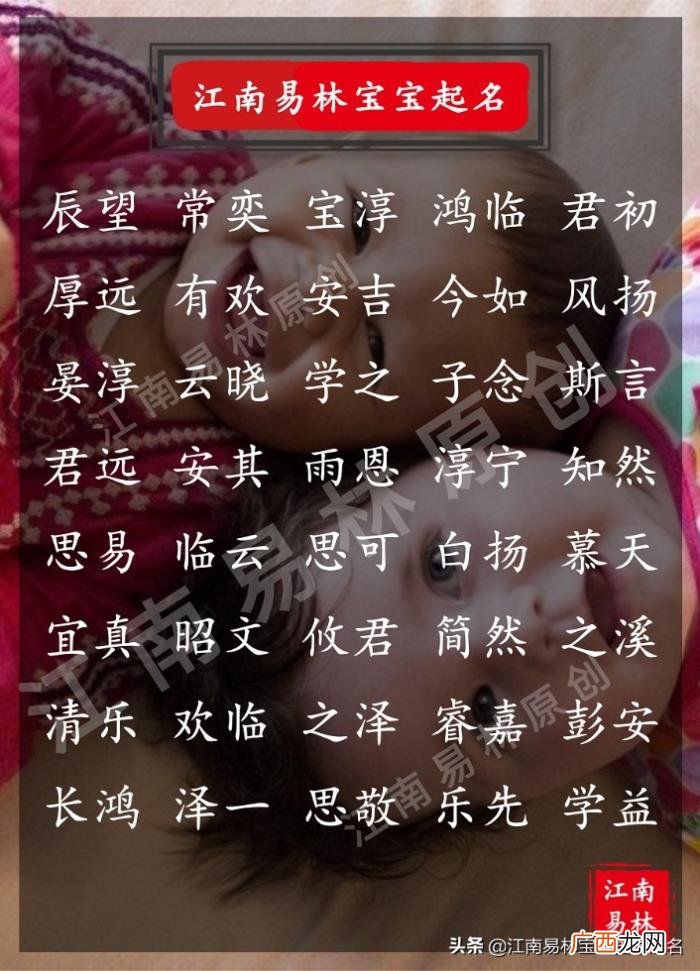 江南易林宝宝起名
辰望 常奕 宝淳 鸿临 君初
厚远 有欢 安吉 今如 风扬
晏淳 云晓 学之 子念 斯言
君远 安其 雨恩 淳宁 知然
思易 临云 思可 白扬 慕天
宜真 昭文 攸君 简然 之溪
清乐 欢临 之泽 睿嘉 彭安
长鸿 泽一 思敬 乐先 学益
江南易林原创
江南易林原创
江南易林原创
江南
易林
广西龙网
头条 @江南易林宝宝起名